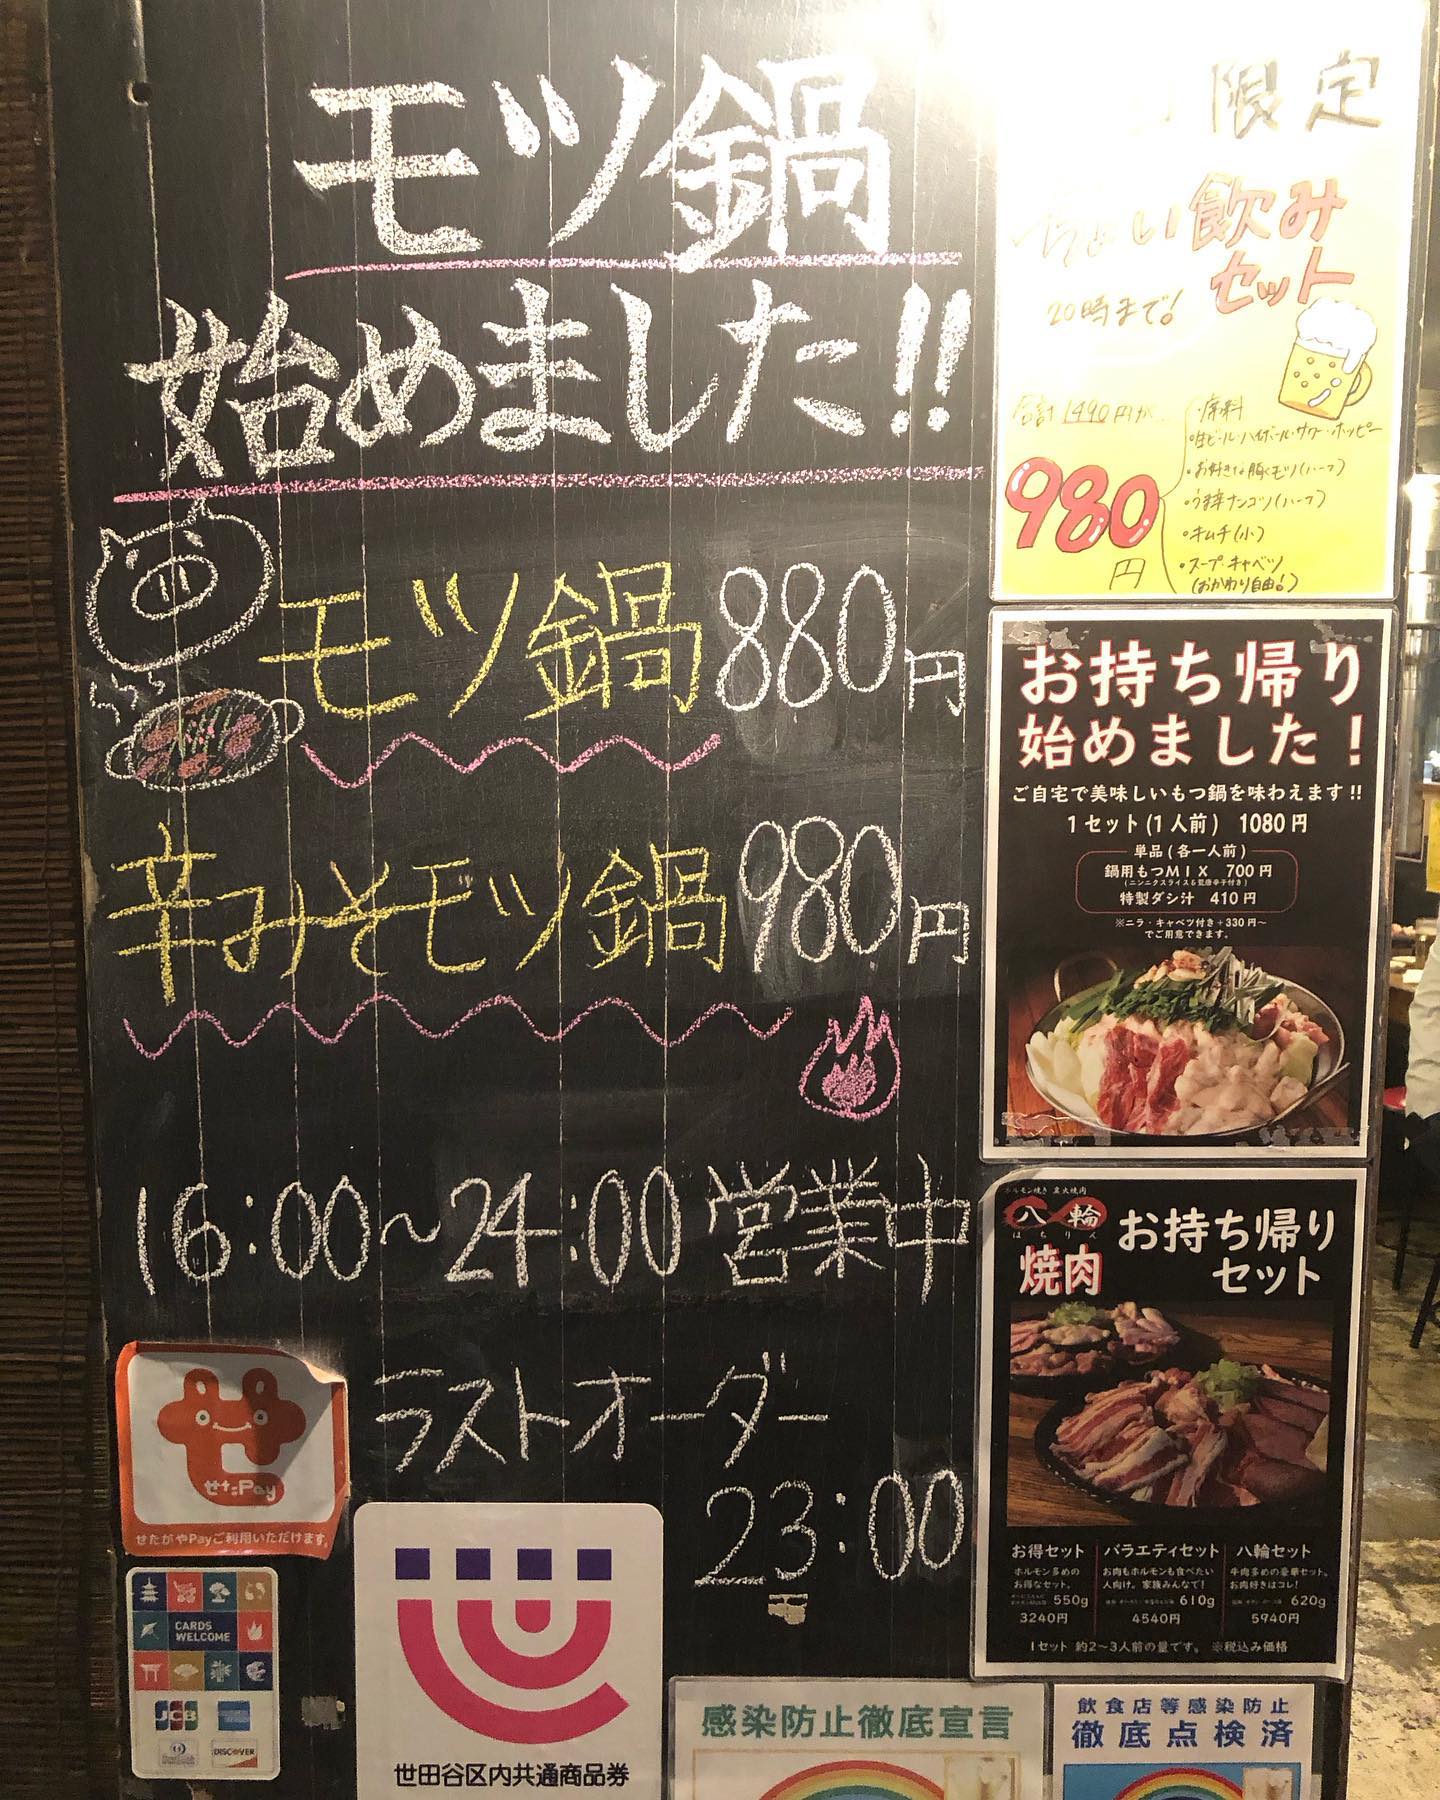 モツ鍋
始めました!!
モツ鍋 880円
辛みそモツ鍋 980円
16:00~24:00 営業中
ラストオーダー
23:00
せた:Pay
せたがやPayご利用いただけます。
CARDS
WELCOME
JCB
DISCOVER
世田谷区内共通商品券
限定
ちょい飲み
セット
20時まで!
合計1490円が
980
円
・席料
・生ビール・ハイボール・サワー・ホッピー
・お好きな豚モツ(ハーフ)
・うま辛ナンコツ(ハーフ)
・キムチ(小)
・スープ・キャベツ
(おかわり自由!)
お持ち帰り
始めました!
ご自宅で美味しいもつ鍋を味わえます!!
1セット(1人前) 1080円
単品(各一人前)
鍋用もつMIX 700円
特製ダシ汁 410円
※ニラ・キャベツ付き+330円～
でご用意できます。
ホルモン焼き 炭火焼肉
八輪
はちりん
焼肉
お持ち帰り
セット
お得セット
ホルモン多めの
お得なセット。
550g
3240円
バラエティセット
お肉もホルモンも食べたい
人向け。家族みんなで!
610g
4540円
八輪セット
牛肉多めの豪華セット。
お肉好きはコレ!
620g
5940円
1セット 約2～3人前の量です。 ※税込み価格
感染防止徹底宣言
飲食店等感染防止
徹底点検済